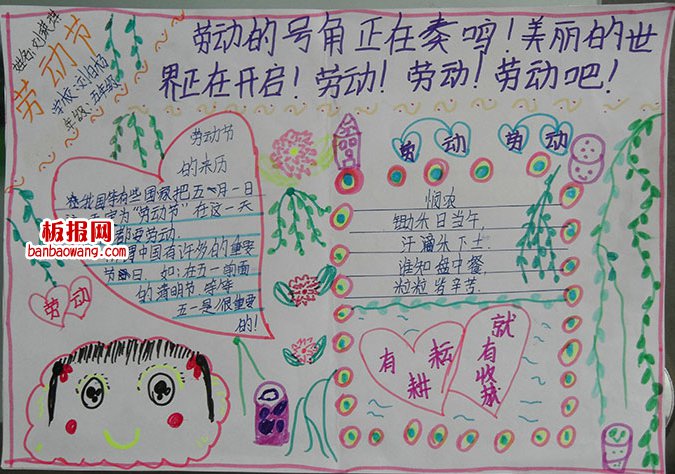 劳动节
姓名:刘
学校:
年级:五年级
劳动的号角正在奏鸣!美丽的世
界正在开启!劳动!劳动!劳动吧!
劳动节
的来历
在我国等有些国家把五月一日
为"劳动节"在这一天
要劳动
中国有许多的重要
节日 如:在五一前面
的清明节 等等
五一是很重要
的!
劳动
板报网
banbaowang.com
劳动 劳动
悯农
锄禾日当午
汗滴禾下土
谁知盘中餐
粒粒皆辛苦
有耕耘
就有收获